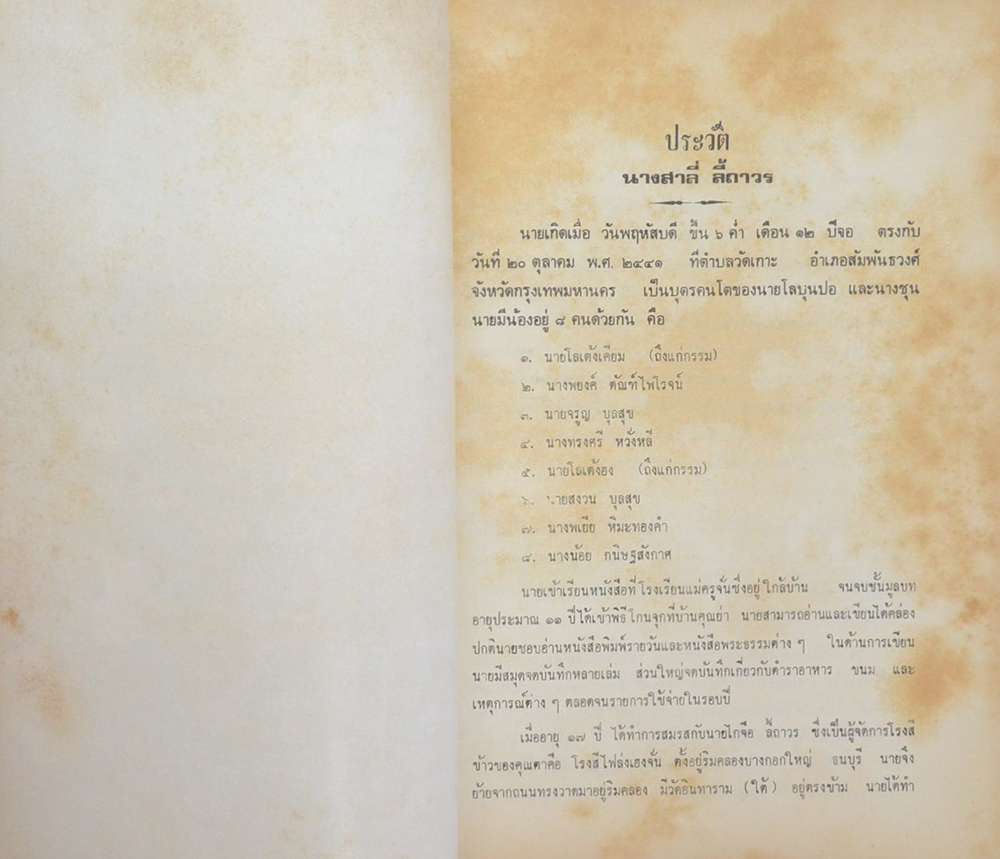 ประวัติ
นางสาลี่ ลี้ถาวร
นายเกิดเมื่อ วันพฤหัสบดี ขึ้น ๖ ค่ำ เดือน ๑๒ ปีจอ ตรงกับ
วันที่ ๒๐ ตุลาคม พ.ศ. ๒๔๔๑ ที่ตำบลวัดเกาะ อำเภอสัมพันธวงศ์
จังหวัดกรุงเทพมหานคร เป็นบุตรคนโตของนายโลบุนปอ และนางชุน
นายมีน้องอยู่ ๘ คนด้วยกัน คือ
๑. นายโลเต้งเคียม (ถึงแก่กรรม)
๒. นางพยงค์ ตัณฑ์ไพโรจน์
๓. นายจรูญ บุลสุข
๔. นางทรงศรี หวั่งหลี
๕. นายโลเต้งฮง (ถึงแก่กรรม)
๖. นายสงวน บุลสุข
๗. นางพเยีย หิมะทองคำ
๘. นางน้อย กนิษฐสังกาศ
นายเข้าเรียนหนังสือที่โรงเรียนแม่ครูจั่นซึ่งอยู่ใกล้บ้าน จนจบชั้นมูลบท
อายุประมาณ ๑๑ ปีได้เข้าพิธีโกนจุกที่บ้านคุณย่า นายสามารถอ่านและเขียนได้คล่อง
ปกตินายชอบอ่านหนังสือพิมพ์รายวันและหนังสือพระธรรมต่าง ๆ ในด้านการเขียน
นายมีสมุดจดบันทึกหลายเล่ม ส่วนใหญ่จดบันทึกเกี่ยวกับตำราอาหาร ขนม และ
เหตุการณ์ต่าง ๆ ตลอดจนรายการใช้จ่ายในรอบปี
เมื่ออายุ ๑๗ ปี ได้ทำการสมรสกับนายไกจือ ลี้ถาวร ซึ่งเป็นผู้จัดการโรงสี
ข้าวของคุณตาคือ โรงสีไฟล่งเฮงจั่น ตั้งอยู่ริมคลองบางกอกใหญ่ ธนบุรี นายจึง
ย้ายจากถนนทรงวาดมาอยู่ริมคลอง มีวัดอินทาราม (ใต้) อยู่ตรงข้าม นายได้ทำ